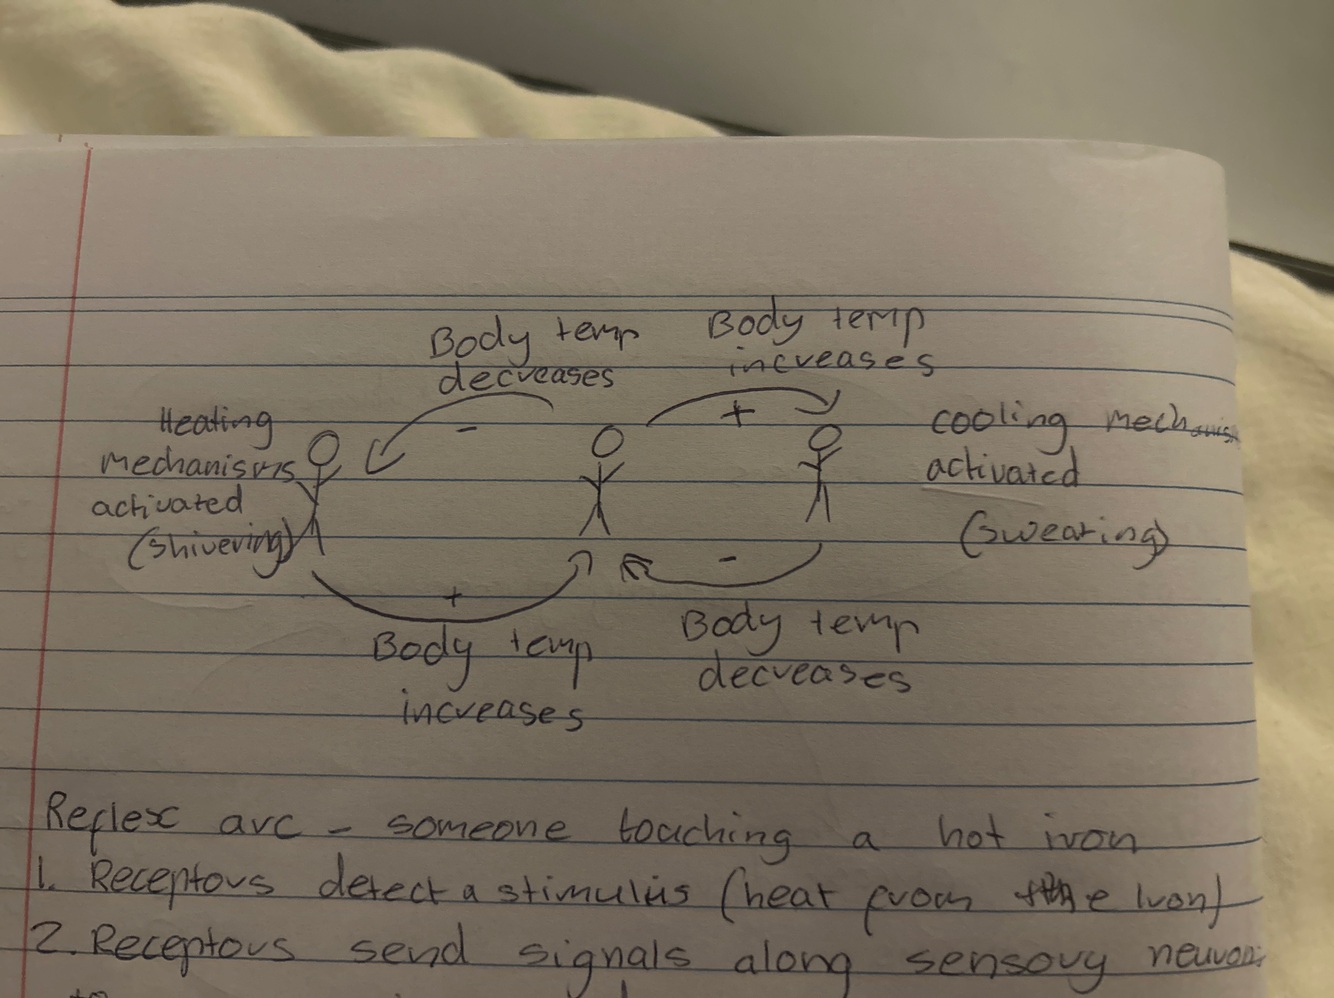 Body temp
decreases
Body temp
increases
-
+
Heating
mechanisms
activated
(shivering)
cooling mechanism
activated
(sweating)
+
-
Body temp
increases
Body temp
decreases
Reflex arc - someone touching a hot iron
1. Receptors detect a stimulus (heat from the Iron)
2. Receptors send signals along sensory neurons
to